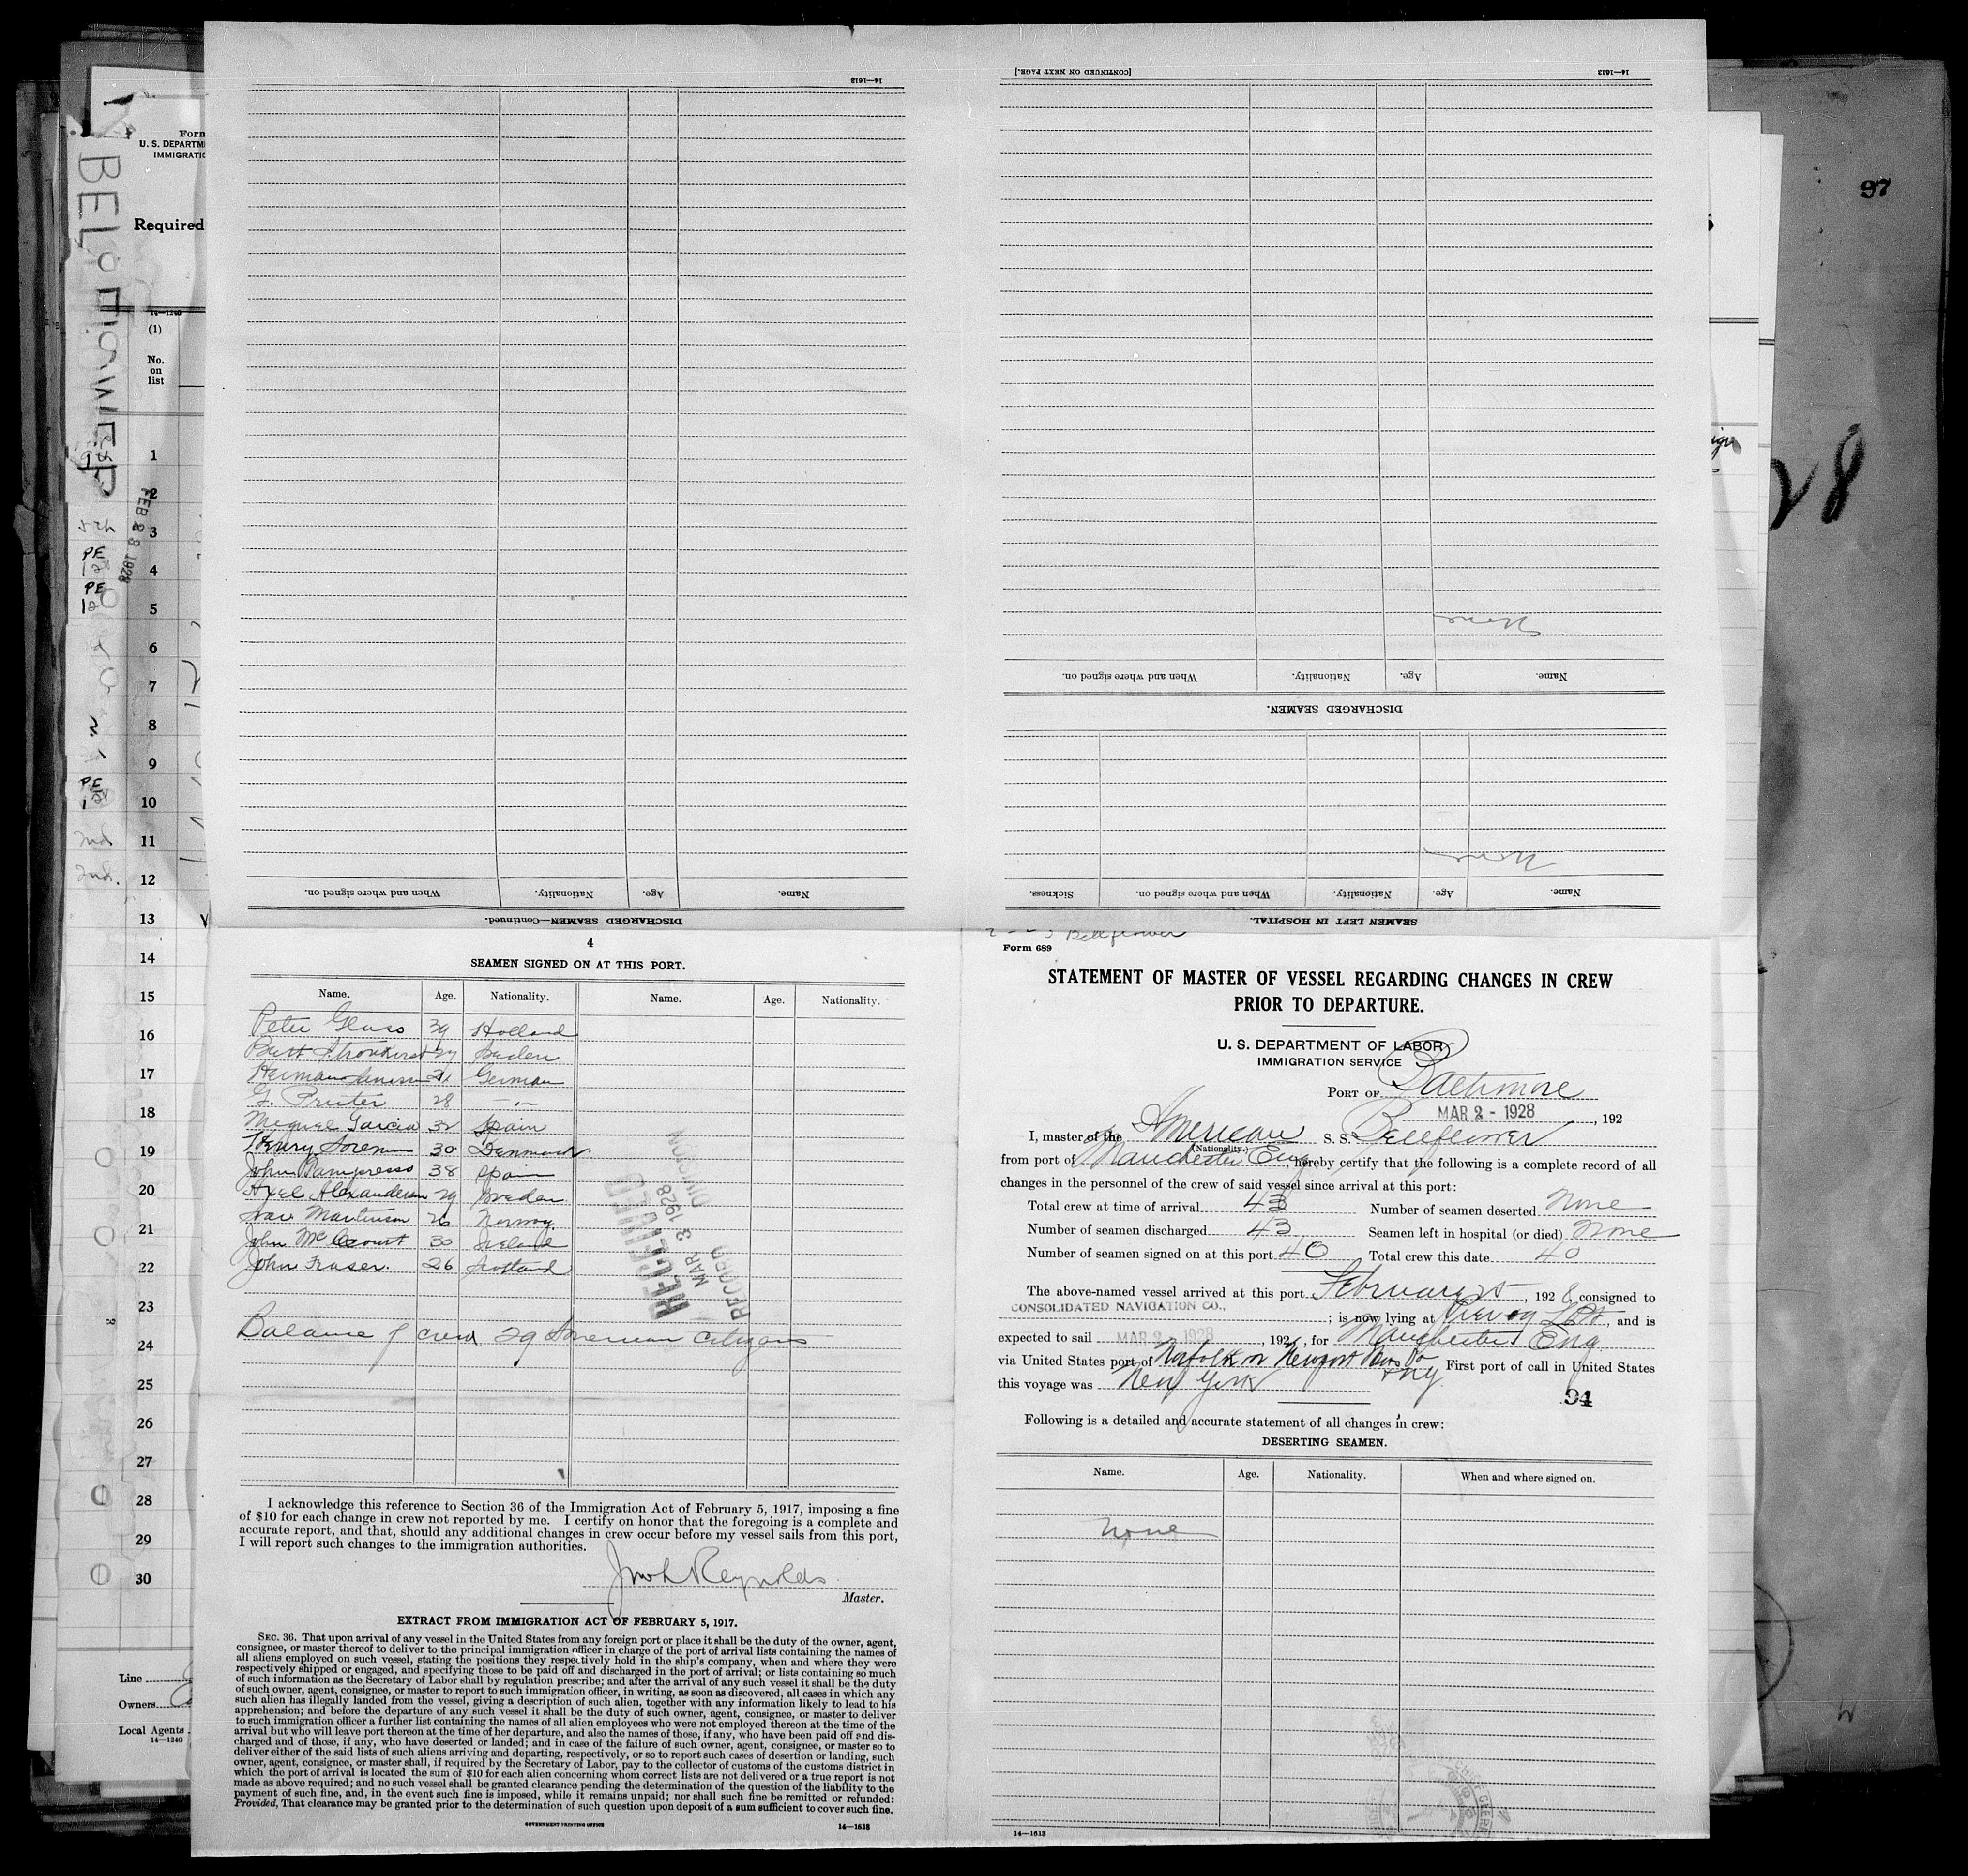 97
28
Form
U. S. DEPARTM
IMMIGRATIO
Required
14—1240
(1)
No.
on
list
FEB 23 1928
1
2
3
4
5
6
7
8
9
10
11
12
13
14
15
16
17
18
19
20
21
22
23
24
25
26
27
28
29
30
PE
PE
PE
2nd
2nd.
Line
Owners
Local Agents
14—1240
14—1613
DISCHARGED SEAMEN—Continued.
Name. Age. Nationality. When and where signed on.
14—1613
[CONTINUED ON NEXT PAGE.]
SEAMEN LEFT IN HOSPITAL.
Name. Age. Nationality. When and where signed on. Sickness.
None
DISCHARGED SEAMEN.
Name. Age. Nationality. When and where signed on.
None
4
SEAMEN SIGNED ON AT THIS PORT.
Name. Age. Nationality. Name. Age. Nationality.
Peter 39 Holland
27
Herman German
G. Pruter 28 —"—
Miguel Garcia 32 Spain
Henry Soren 30 Denmark
John 38 Spain
Axel Alexanderson 29 Sweden
Martinson 26 Norway
John McCourt 30 Ireland
John Fraser. 26 Scotland
Balance of crew 29 American Citizens
RECEIVED
MAR 3 1928
RECORD DIVISION
I acknowledge this reference to Section 36 of the Immigration Act of February 5, 1917, imposing a fine
of $10 for each change in crew not reported by me. I certify on honor that the foregoing is a complete and
accurate report, and that, should any additional changes in crew occur before my vessel sails from this port,
I will report such changes to the immigration authorities.
Reynolds
Master.
EXTRACT FROM IMMIGRATION ACT OF FEBRUARY 5, 1917.
SEC. 36. That upon arrival of any vessel in the United States from any foreign port or place it shall be the duty of the owner, agent,
consignee, or master thereof to deliver to the principal immigration officer in charge of the port of arrival lists containing the names of
all aliens employed on such vessel, stating the positions they respectively hold in the ship's company, when and where they were
respectively shipped or engaged, and specifying those to be paid off and discharged in the port of arrival; or lists containing so much
of such information as the Secretary of Labor shall by regulation prescribe; and after the arrival of any such vessel it shall be the duty
of such owner, agent, consignee, or master to report to such immigration officer, in writing, as soon as discovered, all cases in which any
such alien has illegally landed from the vessel, giving a description of such alien, together with any information likely to lead to his
apprehension; and before the departure of any such vessel it shall be the duty of such owner, agent, consignee, or master to deliver
to such immigration officer a further list containing the names of all alien employees who were not employed thereon at the time of the
arrival but who will leave port thereon at the time of her departure, and also the names of those, if any, who have been paid off and dis-
charged and of those, if any, who have deserted or landed; and in case of the failure of such owner, agent, consignee, or master so to
deliver either of the said lists of such aliens arriving and departing, respectively, or so to report such cases of desertion or landing, such
owner, agent, consignee, or master shall, if required by the Secretary of Labor, pay to the collector of customs of the customs district in
which the port of arrival is located the sum of $10 for each alien concerning whom correct lists are not delivered or a true report is not
made as above required; and no such vessel shall be granted clearance pending the determination of the question of the liability to the
payment of such fine, and, in the event such fine is imposed, while it remains unpaid; nor shall such fine be remitted or refunded:
Provided, That clearance may be granted prior to the determination of such question upon deposit of a sum sufficient to cover such fine.
GOVERNMENT PRINTING OFFICE
14—1613
Bellflower
Form 689
STATEMENT OF MASTER OF VESSEL REGARDING CHANGES IN CREW
PRIOR TO DEPARTURE.
U. S. DEPARTMENT OF LABOR
IMMIGRATION SERVICE
PORT OF Baltimore
MAR 2 - 1928, 192
I, master of the American S. S. Bellflower
(Nationality.)
from port of Manchester Eng, hereby certify that the following is a complete record of all
changes in the personnel of the crew of said vessel since arrival at this port:
Total crew at time of arrival 43 Number of seamen deserted None
Number of seamen discharged 43 Seamen left in hospital (or died) None
Number of seamen signed on at this port 40 Total crew this date 40
The above-named vessel arrived at this port February 25, 1928, consigned to
CONSOLIDATED NAVIGATION CO., ; is now lying at Pier 09, and is
expected to sail MAR 2 1928, 192, for Manchester Eng.
via United States port of Norfolk or Newport News Va & NY. First port of call in United States
this voyage was New York
94
Following is a detailed and accurate statement of all changes in crew:
DESERTING SEAMEN.
Name. Age. Nationality. When and where signed on.
None
14—1613